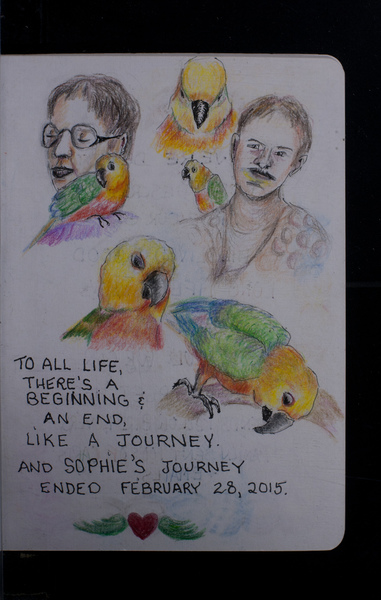 TO ALL LIFE,
THERE'S A
BEGINNING &
AN END,
LIKE A JOURNEY.
AND SOPHIE'S JOURNEY
ENDED FEBRUARY 28, 2015.